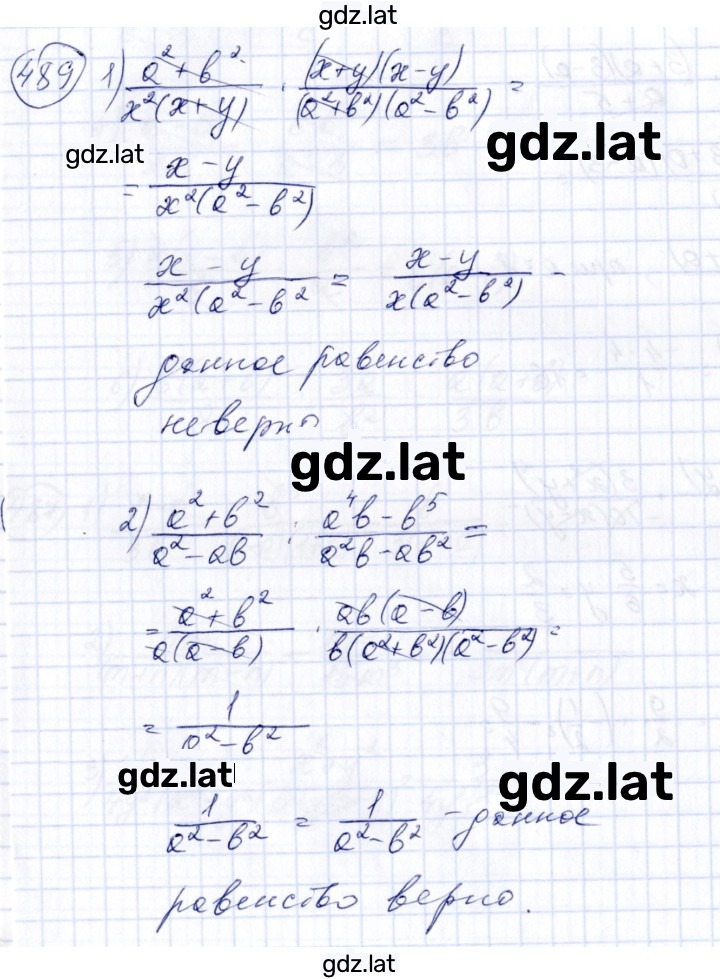 gdz.lat
489 1) (a² + b²)/(x²(x+y)) · ((x+y)(x-y))/((a²+b²)(a²-b²)) =
gdz.lat
gdz.lat
= (x-y)/(x²(a²-b²))
(x-y)/(x²(a²-b²) = (x-y)/(x(a²-b²)) -
данное равенство
неверно
gdz.lat
2) (a²+b²)/(a²-ab) : (a⁴b-b⁵)/(a²b-ab²) =
= (a²+b²)/(a(a-b)) · (ab(a-b))/(b(a²+b²)(a²-b²)) =
= 1/(a²-b²)
gdz.lat
gdz.lat
1/(a²-b²) = 1/(a²-b²) - данное
равенство верно.
gdz.lat